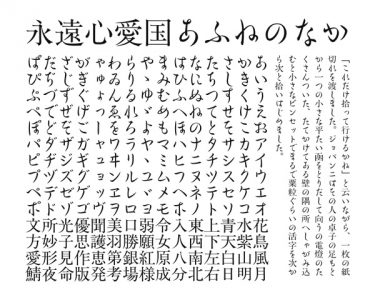 永遠心愛国あふねのなか
「これだけ拾って行けるかね」と云いながら、一枚の紙
切れを渡しました。ジョバンニはその人の卓子の足もと
から一つの小さな平たい函をとりだして向うの電燈のた
くさんついた、たてかけてある壁の隅の所へしゃがみ込
むと小さなピンセットでまるで粟粒ぐらいの活字を次か
ら次と拾いはじめました。
あいうえおアイウエオ花鳥風月
かきくけこカキクケコ水紫山明
さしすせそサシスセソ青天白日
たちつてとタチツテト上下左右
なにぬねのナニヌネノ東西南北
はひふへほハヒフヘホ入人八分
まみむめもマミムメモ令女原成
やゆよヤユヨ弱願紅様
らりるれろラリルレロ口勝銀場
わゐんゑをワヰンヱヲ美羽第考
ゃゅょっーャュョッ聞護恵発
がぎぐげごガギグゲゴ優思作版
ざじずぜぞザジズゼゾ光子見命
だぢづでどダヂヅデド所妙形夜
ばびぶべぼパピプペポ文方愛鯖